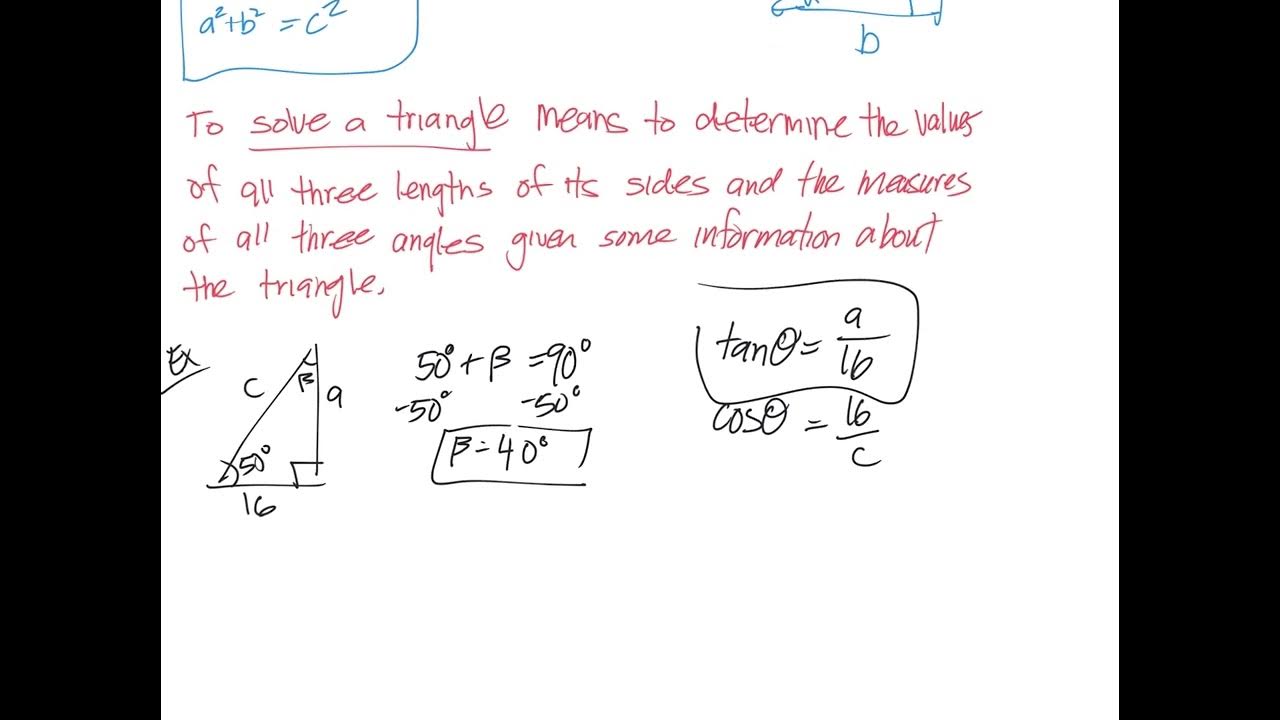 a²+b² = c²
b
To solve a triangle means to determine the values
of all three lengths of its sides and the measures
of all three angles given some information about
the triangle.
Ex
c
β
a
50°
16
50° + β = 90°
-50° -50°
β = 40°
tanθ = a/16
cosθ = 16/c